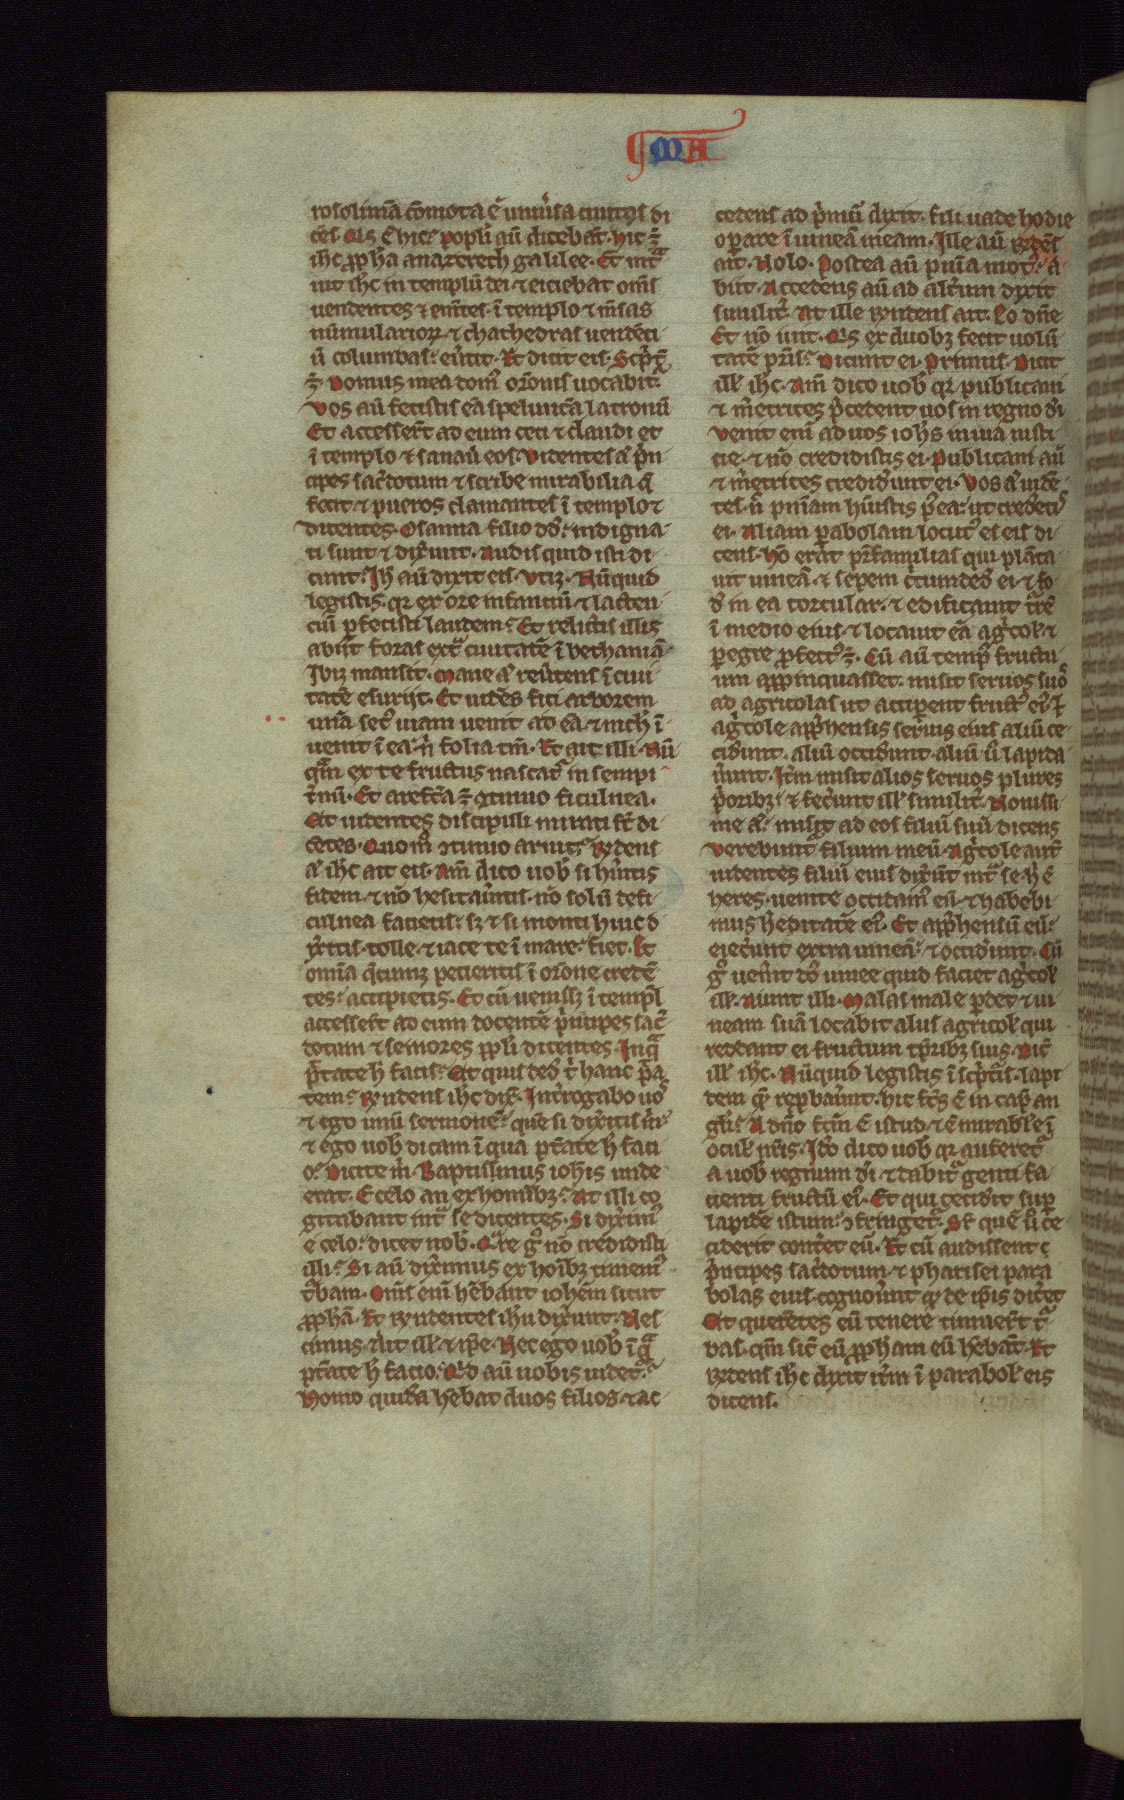 MA
rosolimā c̄mota ē uniũsa ciuitas di
cēs. Qis ē hic? Popl'i aū dicebāt. hic ē
ih̄c ꝓph̄a a nazereth galilee. Et int̄
uit ih̄c in templū dei ⁊ eiciebat om̄s
uendentes ⁊ em̄tes ī templo ⁊ m̄sas
nūmularioꝝ ⁊ chathedras uendēti
ū columbas euertit. Et dicit eis. Sc̄ptū
ē Domus mea dom' or̄onis uocabit'.
Vos aū fecistis eā speluncā latronū
Et accesser̄t ad eum ceci ⁊ claudi et
ī templo ⁊ sanauit eos. Videntes aū p̄n
cipes sac̄dotum ⁊ scribe mirabilia q̄
fecit ⁊ pueros clamantes ī templo ⁊
dicentes. Osanna filio dd'. indigna
ti sunt ⁊ dix̄unt. Audis quid isti di
cunt? Ih̄ aū dixit eis. Vtiꝗ. Nūquid
legistis. qr ex ore infantiū ⁊ lacten
ciū ꝑfecisti laudem? Et relictis illis
abijt foras ext̄ ciuitatē ī bethaniā
Ibiꝗ mansit. Mane aū reūtens ī ciui
tatē esurijt. Et uidēs fici arborem
unā sec' uiam uenit ad eā ⁊ nich' ī
uenit ī ea n̄ folia tm̄. Et ait illi. Nū
qm̄ ex te fructus nascat' in sempi
t̄nū. Et arefc̄a ē ꝯtinuo ficulnea.
Et uidentes discipuli mirati st̄ di
cētes. Quom° ꝯtinuo aruit? R̄ndens
aū ih̄c ait eis. Am̄ dico uob' si hūitis
fidem ⁊ nō hesitaūitis. nō solū de fi
culnea facietis. sꝫ ⁊ si monti huic d
ix̄itis. tolle ⁊ iacte te ī mare. fiet. Et
omīa q̄cumꝗ petieritis ī or̄one credē
tes accipietis. Et cū uenissꝫ ī templ'
accesser̄t ad eum docentē p̄ncipes sac̄
dotum ⁊ seniores ppl'i dicentes. In q̄
p̄tate h̄ facis? Et quis ded' t' hanc p̄a
tem? R̄ndens ih̄c dix'. Int̄rogabo uos
⁊ ego unū sermonē. quē si dix̄itis m'
⁊ ego uob' dicam ī qua p̄tate h̄ faci
o. Dicite m'. Baptismus ioh̄is unde
erat. E celo an ex hominibꝫ? At illi co
gitabant int̄ se dicentes. Si dix̄im'
e celo. dicet nob'. Q̄re g° nō credidisti
illi? Si aū dix̄imus ex hoībꝫ timem'
t̄bam. Om̄s enī h̄ebant ioh̄em sicut
ꝓph̄ā. Et r̄ndentes ih̄u dix̄unt. Nes
cimus. Ait ill' ⁊ ip̄e. Nec ego uob' ī q̄
p̄tate h̄ facio. Qd aū uobis uidet'?
Homo quidā h̄ebat duos filios. ⁊ ac
cedens ad p̄mū dixit. fili uade hodie
operare ī uineā meam. Ille aū r̄ndēs
ait. Nolo. Postea aū penīa mot'. a
biit. Accedens aū ad alt̄um dixit
similit̄. At ille r̄ndens ait. Eo dn̄e
Et nō iuit. Qis ex duobꝫ fecit uolū
tatē pr̄is? Dicunt ei. Primus. Dicit
ill' ih̄c. Am̄ dico uob' qr publicani
⁊ m̄etrices p̄cedent uos in regno d'i
Venit enī ad uos ioh̄s in uia iusti
cie. ⁊ nō credidistis ei. Publicani aū
⁊ m̄etrices credid̄unt ei. Vos aū uidē
tes n̄ pniam hūistis p̄ea. ut cred'etis
ei. Aliam ꝑabolam locut' est eis di
cens. Hō erat pr̄familias qui plāta
uit uineā. ⁊ sepem c̄cumded' ei. ⁊ fo
d' in ea torcular. ⁊ edificauit t̄rē
ī medio eius ⁊ locauit eā aḡcol' ⁊
ꝑegre ꝓfect' ē. Cū aū temp' fructu
um appinquasset. misit seruos suos
ad agricolas ut accipent fruct' ei'. ⁊
aḡcole app̄hensis seruis eius aliū ce
cid̄unt. aliū occid̄unt. aliū ū lapida
ūunt. It̄m misit alios seruos plures
p̄oribꝫ. ⁊ fec̄unt ill' similit̄. Nouissi
me aū misit ad eos filiū suū dicens
Verebunt' filium meū. Aḡcole aut̄
uidentes filiū eius dix̄ūt int̄ se. h' ē
heres. uenite occidam' eū. ⁊ habebi
mus h̄editatē ei'. Et app̄hensū eū
eiec̄unt extra uineā. ⁊ occid̄unt. Cū
g° ueūit dn̄s uinee quid faciet aḡcol'
ill'. Aiunt illi. Malos male ꝑdet ⁊ ui
neam suā locabit aliis agricol' qui
reddant ei fructum tp̄ribꝫ suis. Dic̄
ill' ih̄c. Nūquid legistis ī sc̄pt̄is. lapi
dem qē rep̄baūunt. hic fc̄s ē in cap̄ an
gl'i? A dn̄o fc̄m ē istud. ⁊ ē mirabile ī
ocul' nr̄is. Ido dico uob' qr auferet'
a uob' regnum d'i. ⁊ dabit' genti fa
cienti fructū ei'. Et qui cecid̄it sup
lapidē istum. ꝯfringet'. Sr quē ū ce
ciderit conteret eū. Et cū audissent
p̄ncipes sac̄dotum. ⁊ pharisei para
bolas eius. cognoūunt qd de ip̄is dic̄et
Et querētes eū tenere timuer̄t t̄
bas. qm̄ sic̄ ꝓph̄am eū h̄ebāt. Et
r̄ndens ih̄c dixit it̄m ī parabol' eis
dicens.